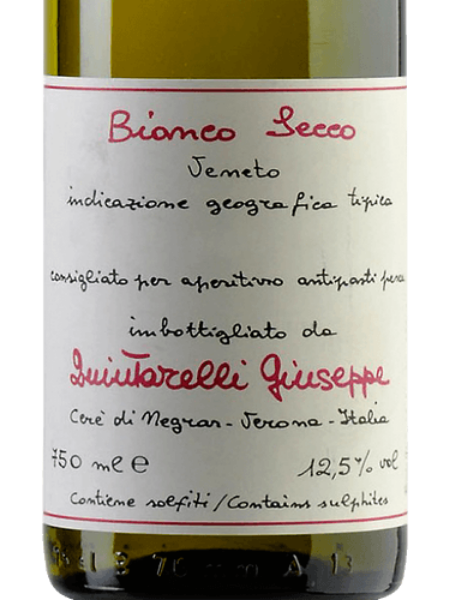 Bianco Secco
Veneto
indicazione geografica tipica
consigliato per aperitivo antipasti pesce
imbottigliato da
Quintarelli Giuseppe
Cerè di Negrar - Verona - Italia
750 ml e 12,5% vol
Contiene solfiti / Contains sulphites
70 mm A 13